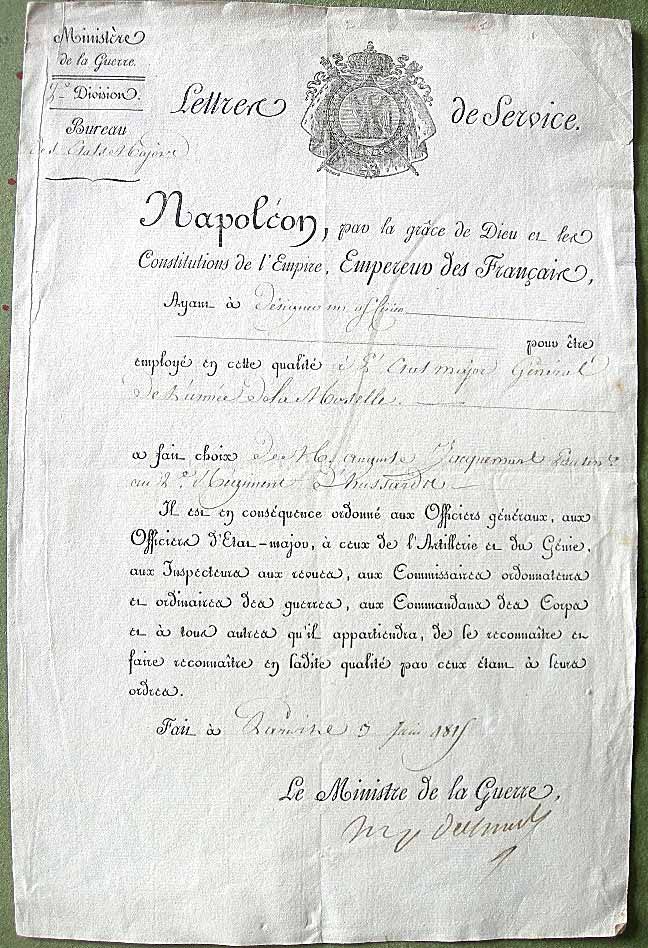 Ministère
de la Guerre.
2e Division.
Bureau
des Etats Majors
Lettres de Service.
Napoléon, par la grâce de Dieu et les
Constitutions de l'Empire, Empereur des Français,
Ayant à désigner un officier
pour être
employé en cette qualité à l'Etat major Général
de l'armée de la Moselle.
a fait choix de M. Auguste Jacqueminot Lieuten.t
au 2e Régiment d'hussards
Il est en conséquence ordonné aux Officiers généraux, aux
Officiers d'Etat-major, à ceux de l'Artillerie et du Génie,
aux Inspecteurs aux revues, aux Commissaires ordonnateurs
et ordinaires des guerres, aux Commandans des Corps
et à tous autres qu'il appartiendra, de le reconnaître et
faire reconnaître en ladite qualité par ceux étant à leurs
ordres.
Fait à 3 Juin 1815
Le Ministre de la Guerre,